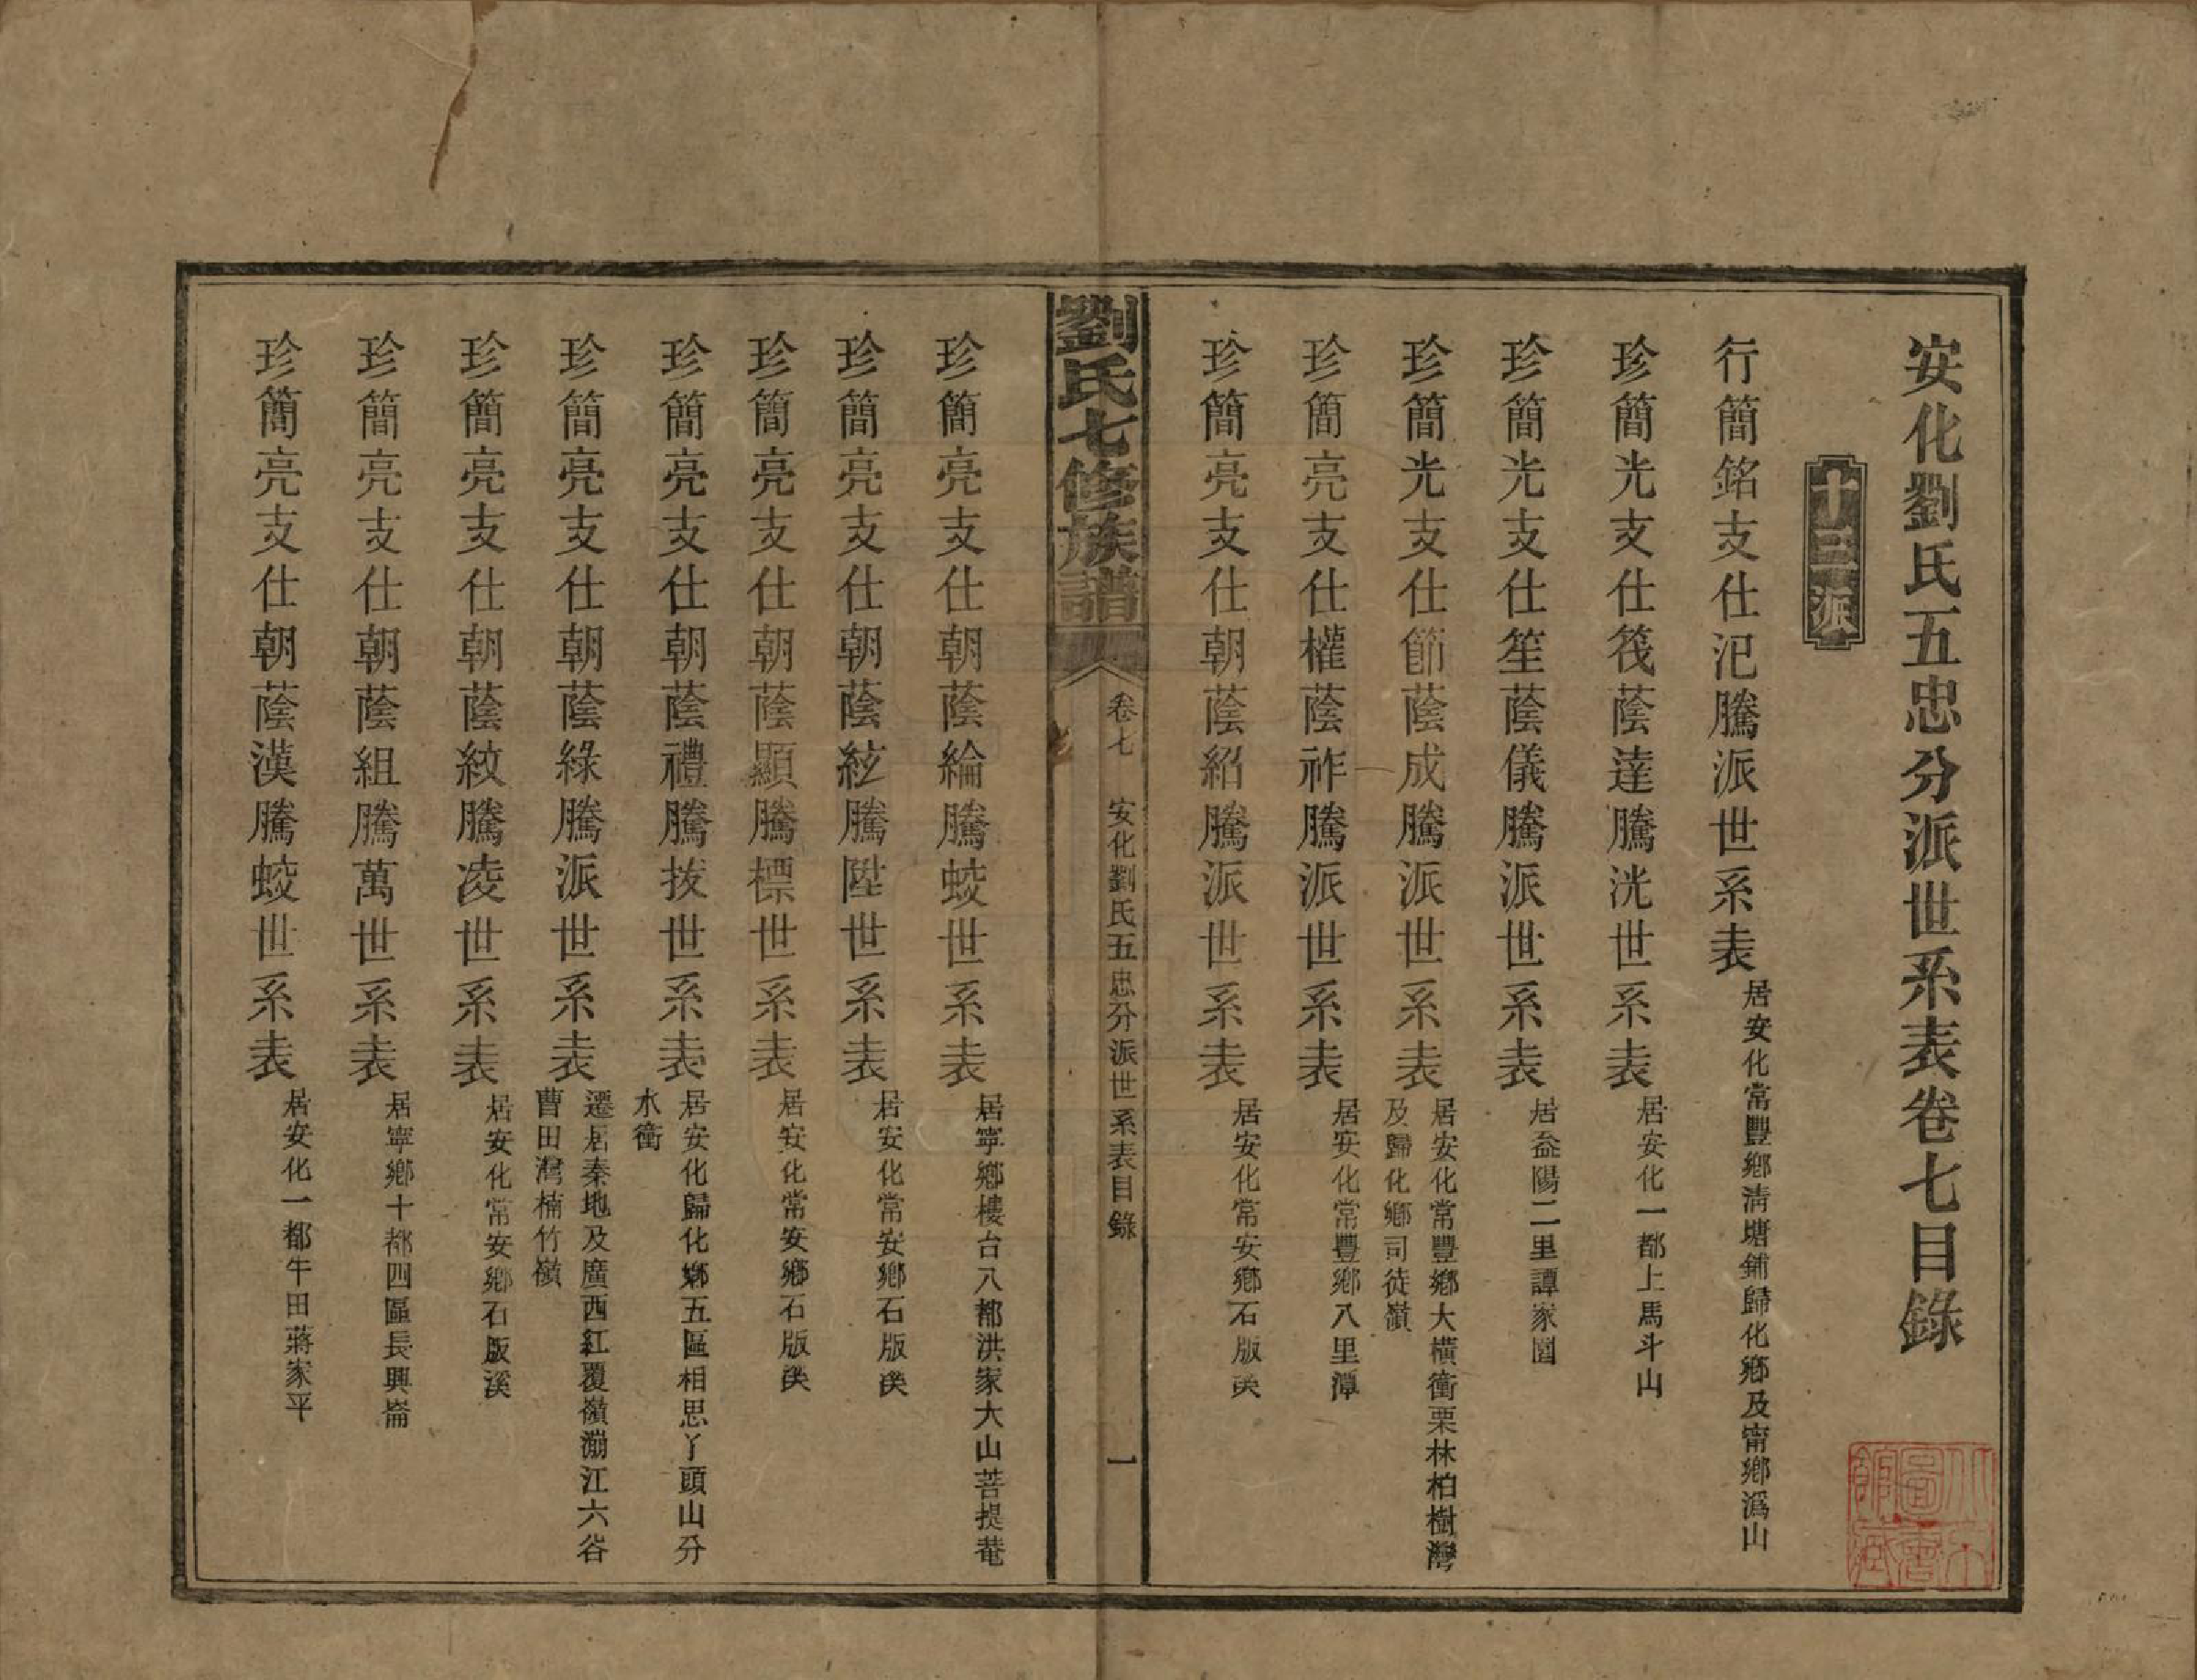 安化劉氏五忠分派世系表卷七目錄
十三派
行簡銘支仕汜騰派世系表 居安化常豐鄉淸塘鋪歸化鄉及甯鄉溈山
珍簡光支仕筏蔭達騰洸世系表 居安化一都上馬斗山
珍簡光支仕笙蔭儀騰派世系表 居益陽二里譚家園
珍簡光支仕節蔭成騰派世系表 居安化常豐鄉大橫衝栗林柏樹灣
及歸化鄉司徒嶺
珍簡亮支仕權蔭祚騰派世系表 居安化常豐鄉八里潭
珍簡亮支仕朝蔭紹騰派世系表 居安化常安鄉石版溪
劉氏七修族譜
卷七 安化劉氏五忠分派世系表目錄
一
珍簡亮支仕朝蔭綸騰蛟世系表 居寧鄉樓台八都洪家大山菩提菴
珍簡亮支仕朝蔭絃騰陞世系表 居安化常安鄉石版溪
珍簡亮支仕朝蔭顯騰標世系表 居安化常安鄉石版溪
珍簡亮支仕朝蔭禮騰拔世系表 居安化歸化鄉五區相思丫頭山分
水衝
珍簡亮支仕朝蔭綠騰派世系表 遷居秦地及廣西紅覆嶺漰江六谷
曹田灣楠竹嶺
珍簡亮支仕朝蔭紋騰凌世系表 居安化常安鄉石版溪
珍簡亮支仕朝蔭組騰萬世系表 居寧鄉十都四區長興崙
珍簡亮支仕朝蔭漢騰蛟世系表 居安化一都牛田蔣家平